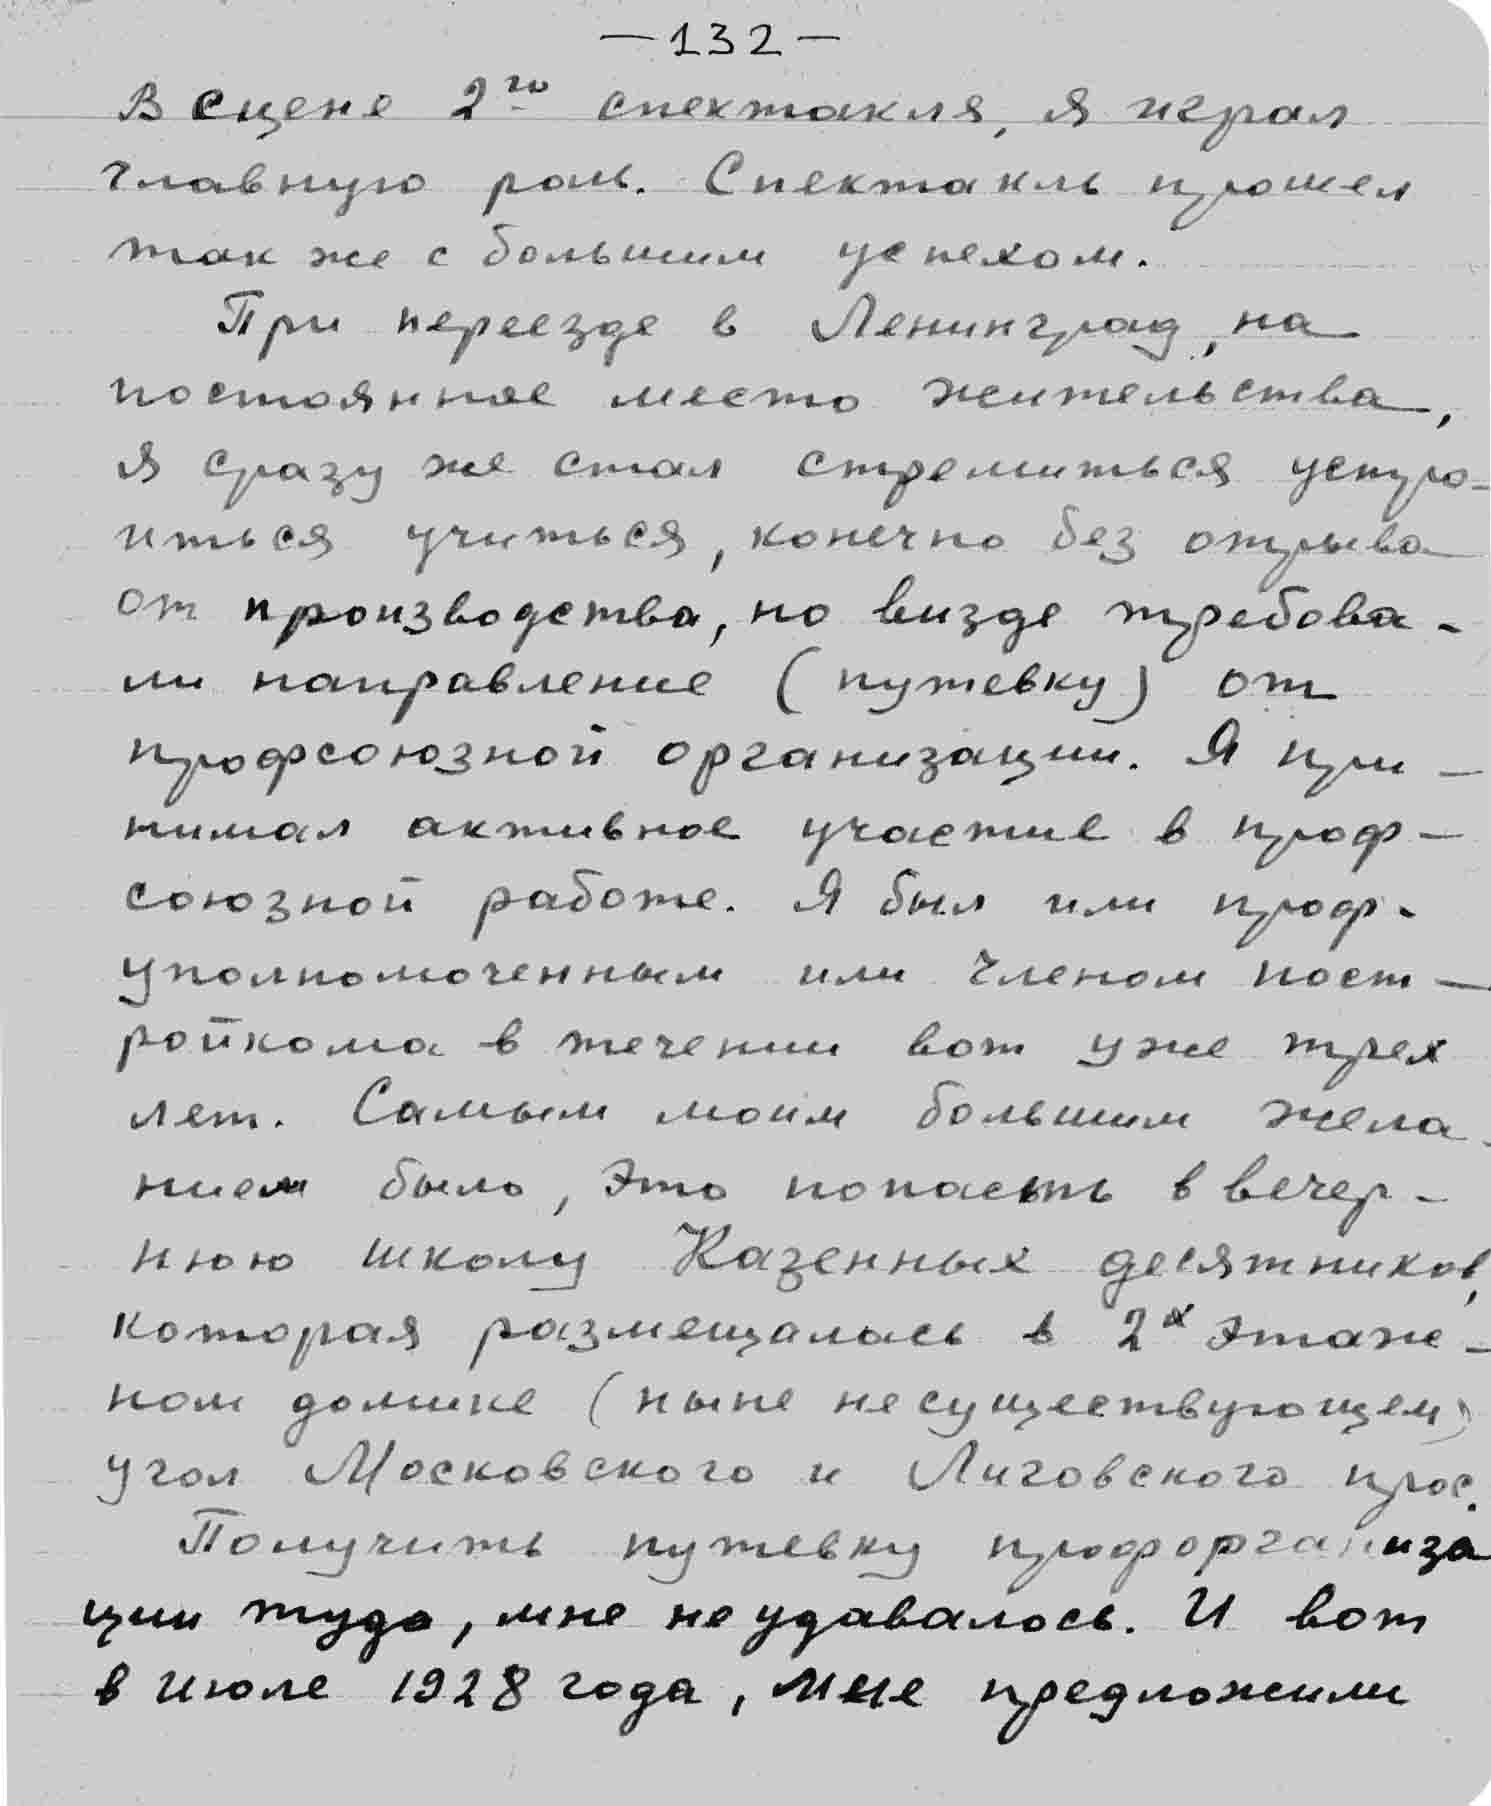 — 132 —
В сцене 2го спектакля, я играл
главную роль. Спектакль прошел
так же с большим успехом.
При переезде в Ленинград, на
постоянное место жительства,
я сразу же стал стремиться устро-
иться учиться, конечно без отрыва
от производства, но визде требова-
ли направление (путевку) от
профсоюзной организации. Я при-
нимал активное участие в проф-
союзной работе. Я был или проф-
уполномоченным или членом пост-
ройкома в течении вот уже трех
лет. Самым моим большим жела-
нием было, это попасть в вечер-
нюю школу Казенных десятников,
которая размещалась в 2х этаж-
ном домике (ныне несуществующем)
угол Московского и Лиговского прос.
Получить путевку профорганиза
ции туда, мне не удавалось. И вот
в июле 1928 года, мне предложили